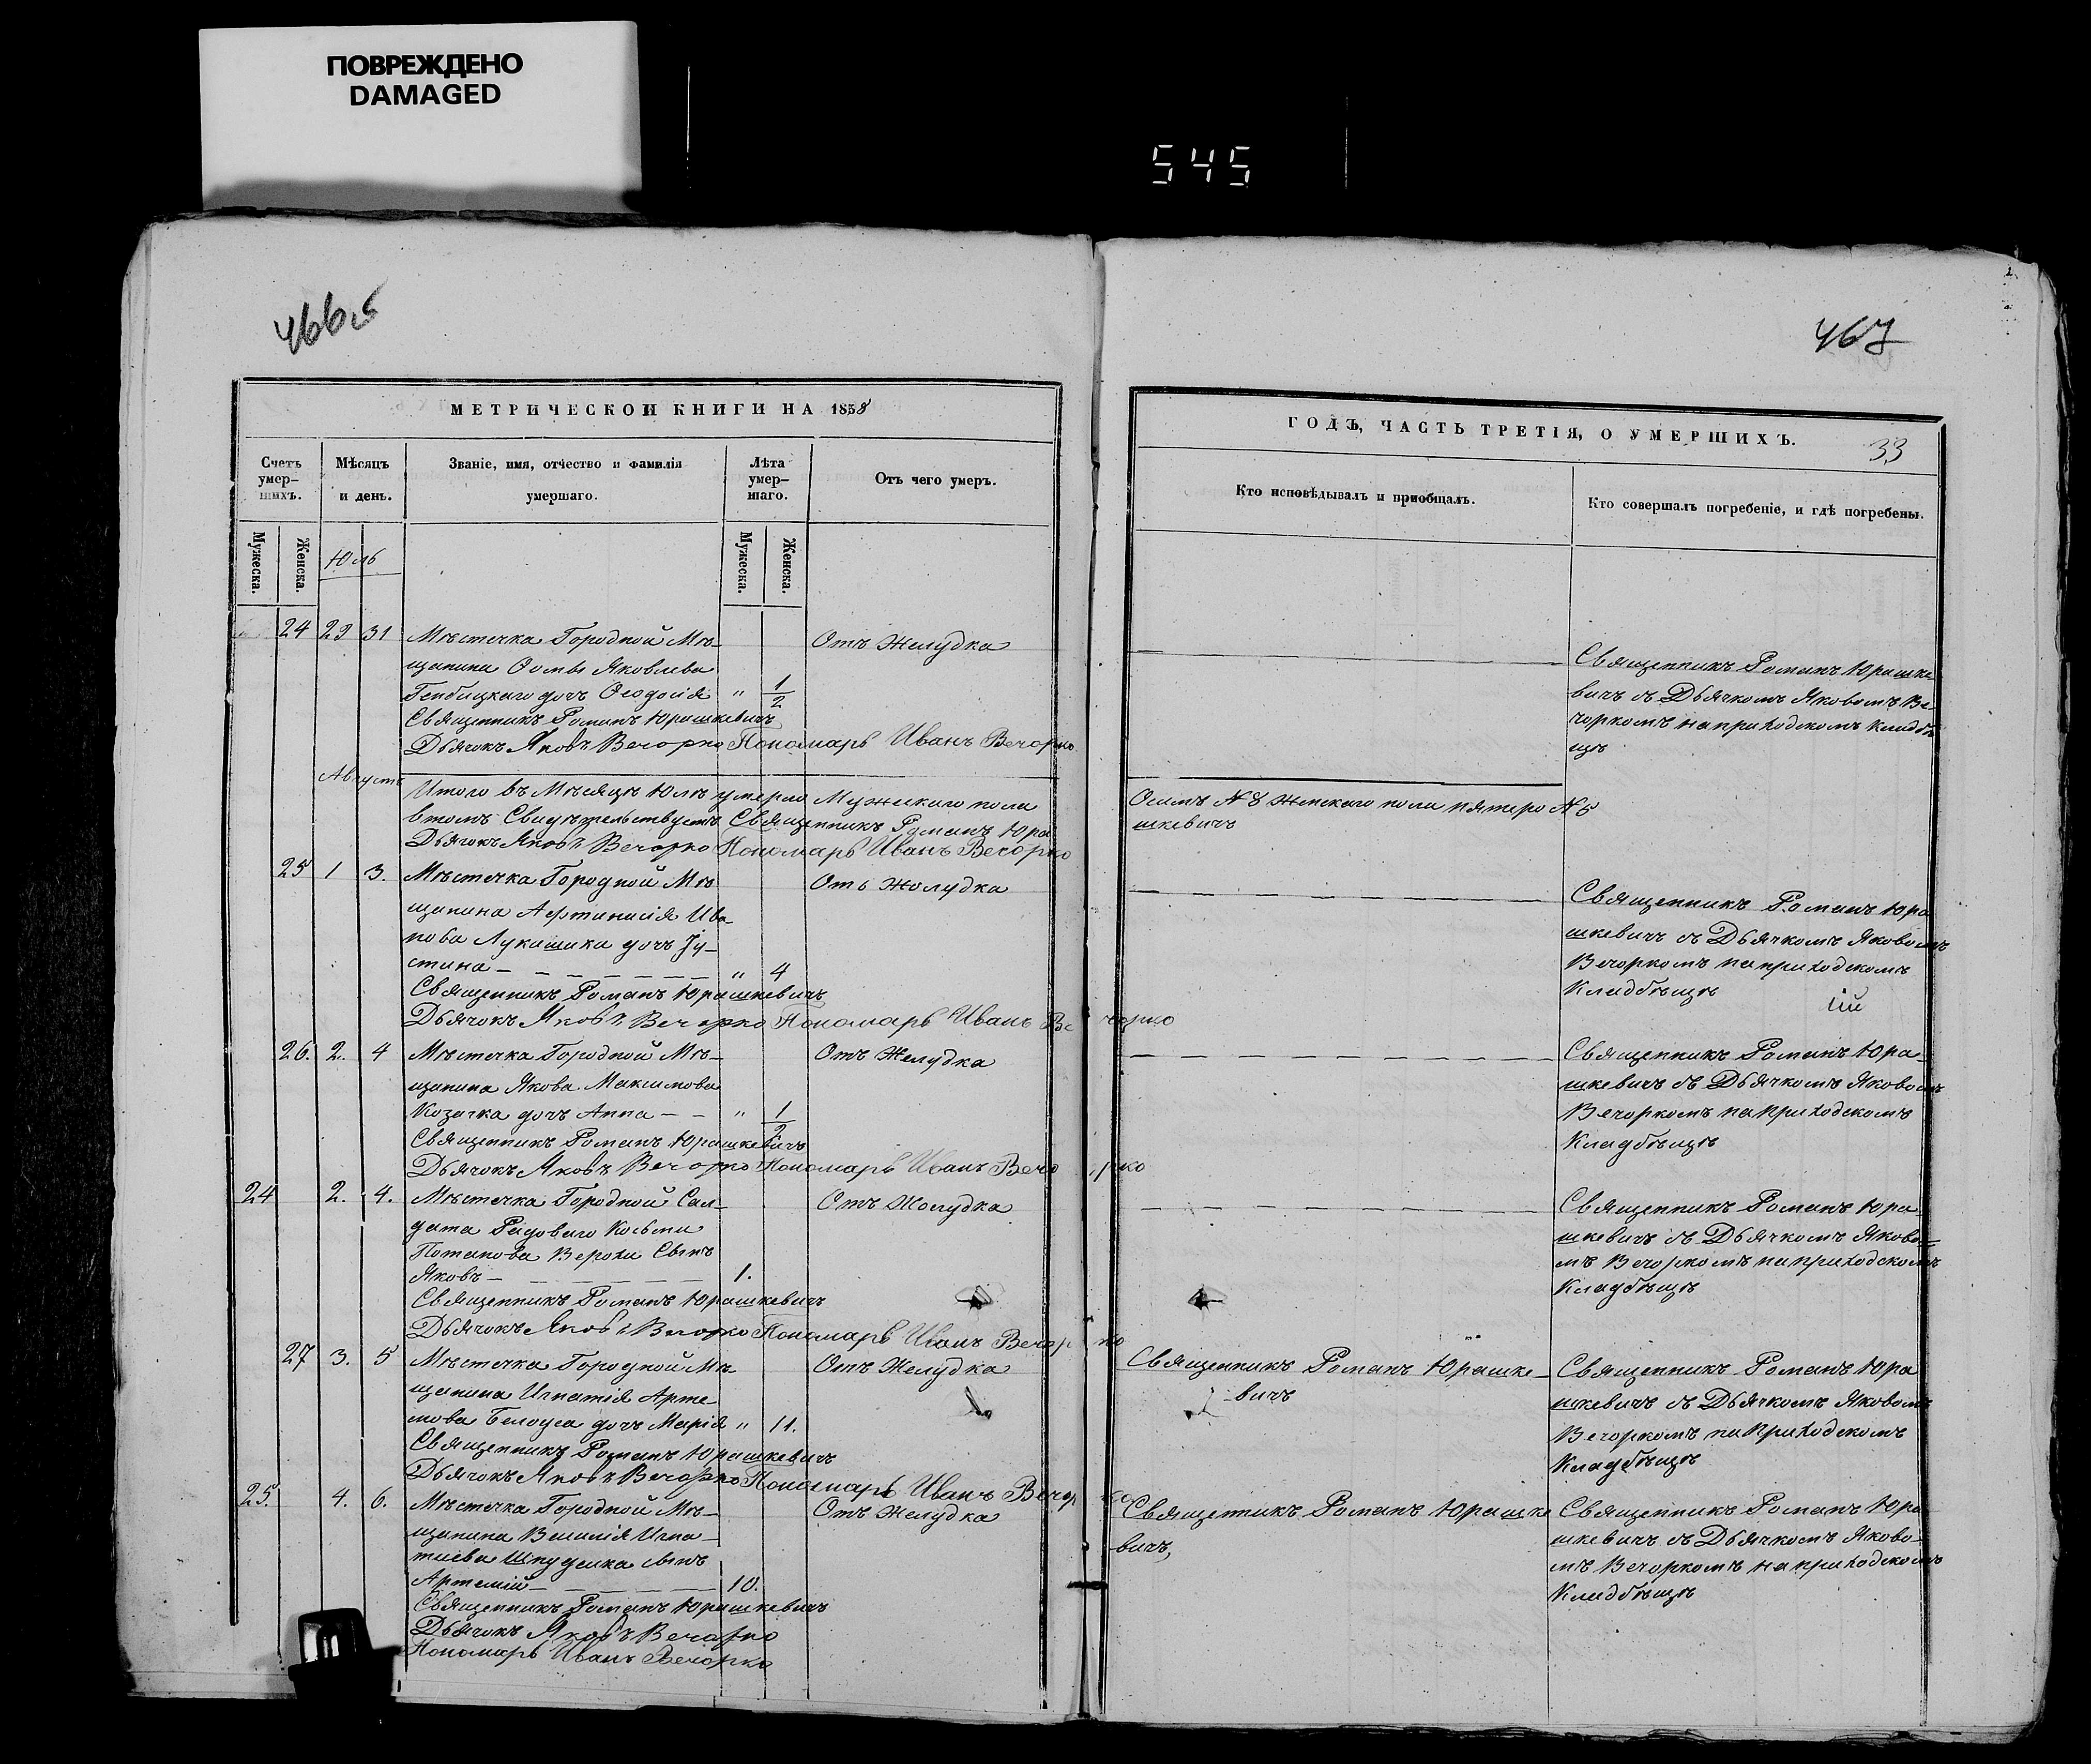 ПОВРЕЖДЕНО
DAMAGED
545
466об
467
МЕТРИЧЕСКОЙ КНИГИ НА 1858
ГОДЪ, ЧАСТЬ ТРЕТІЯ, О УМЕРШИХЪ.
33
Счетъ умер-шихъ.
Мѣсяцъ и день.
Званіе, имя, отчество и фамилія умершаго.
Лѣта умер-шаго.
Отъ чего умеръ.
Кто исповѣдывалъ и пріобщалъ.
Кто совершалъ погребеніе, и гдѣ погребены.
Мужеска.
Женска.
Мужеска.
Женска.
Юль
24 29 31 Мѣстечка Городной Мѣ-
щанина Ѳомы Яковлева
дочь Ѳеодосія " 1/2
Отъ Желудка
Священникъ Романъ Юрашкевичъ
Дьячокъ Яковъ Вечорко Пономарь Иванъ Вечорко
Священникъ Романъ Юрашке
вичъ съ Дьячкомъ Яковомъ Ве-
чоркомъ на приходскомъ кладбѣ
щѣ
Августъ
Итого въ Мѣсяцѣ Юлѣ умерло Мужескаго пола
Осимъ №8 Женскаго пола пятеро №5
втомъ Свидѣтельствуетъ Священникъ Романъ Юра
шкевичъ
Дьячокъ Яковъ Вечорко Пономарь Иванъ Вечорко
25 1 3. Мѣстечка Городной Мѣ
щанина Афтанасія Ива-
нова Лукашика дочь Іу-
стина - " 4
Отъ Жолудка
Священникъ Романъ Юрашкевичъ
Дьячокъ Яковъ Вечорко Пономарь Иванъ Вечорко
Священникъ Романъ Юра
шкевичъ съ Дьячкомъ Яковомъ
Вечоркомъ на приходскомъ
Кладбѣщѣ
26. 2. 4 Мѣстечка Городной Мѣ-
щанина Якова Максимова
Козачка дочь Анна - - " 1/2
Отъ Желудка
Священникъ Романъ Юрашкевичъ
Дьячокъ Яковъ Вечорко Пономарь Иванъ Вечорко
Священникъ Романъ Юра-
шкевичъ съ Дьячкомъ Яковомъ
Вечоркомъ на приходскомъ
Кладбѣщѣ
24 2. 4. Мѣстечка Городной Сал-
дата Рядоваго Косьми
Потапова Верохи Сынъ
Яковъ - 1.
Отъ Жолудка
Священникъ Романъ Юрашкевичъ
Дьячокъ Яковъ Вечорко Пономарь Иванъ Вечорко
Священникъ Романъ Юра-
шкевичъ съ Дьячкомъ Яково-
мъ Вечоркомъ на приходскомъ
Кладбѣщѣ
27 3. 5 Мѣстечка Городной Мѣ-
щанина Игнатія Арте-
мова Белоуса дочь Марія " 11.
Отъ Желудка
Священникъ Романъ Юрашкевичъ
Дьячокъ Яковъ Вечорко Пономарь Иванъ Вечорко
Священникъ Романъ Юрашке-
вичъ
Священникъ Романъ Юра
шкевичъ съ Дьячкомъ Яковомъ
Вечоркомъ на Приходскомъ
Кладбѣщѣ
25. 4. 6. Мѣстечка Городной Мѣ-
щанина Василія Игна-
тиева Шпудейка сынъ
Артемій - 10.
Отъ Желудка
Священникъ Романъ Юрашкевичъ
Дьячокъ Яковъ Вечорко
Пономарь Иванъ Вечорко
Священникъ Романъ Юрашке
вичъ,
Священникъ Романъ Юра
шкевичъ съ Дьячкомъ Яково-
мъ Вечоркомъ на приходскомъ
Кладбѣщѣ